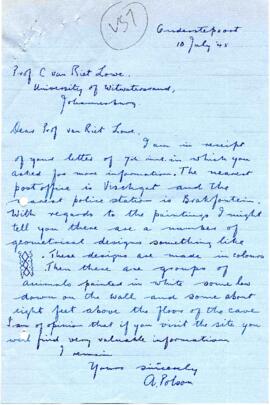 V57
Onderstepoort
10 July '45
Prof C van Riet Lowe.
University of Witwatersrand,
Johannesburg
Dear Prof van Riet Lowe.
I am in receipt
of your letter of 7th inst. in which you
asked for more information. The nearest
post office is Vischgat and the
nearest police station is Brakfontein.
With regards to the paintings I might
tell you there are a number of
geometrical designs something like
. These designs are made in colours
Then there are groups of
animals painted in white some low
down on the wall and some about
eight feet above the floor of the cave
I am of opinion that if you visit the site you
will find very valuable information
I remain
Yours sincerely
A. Polson